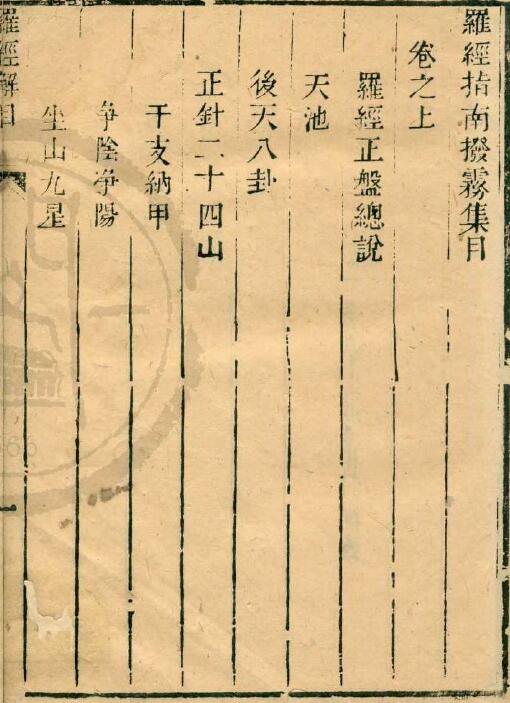 羅經指南撥霧集目
卷之上
羅經正盤總說
天池
後天八卦
正針二十四山
干支納甲
争陰净陽
坐山九星
羅經解目
一